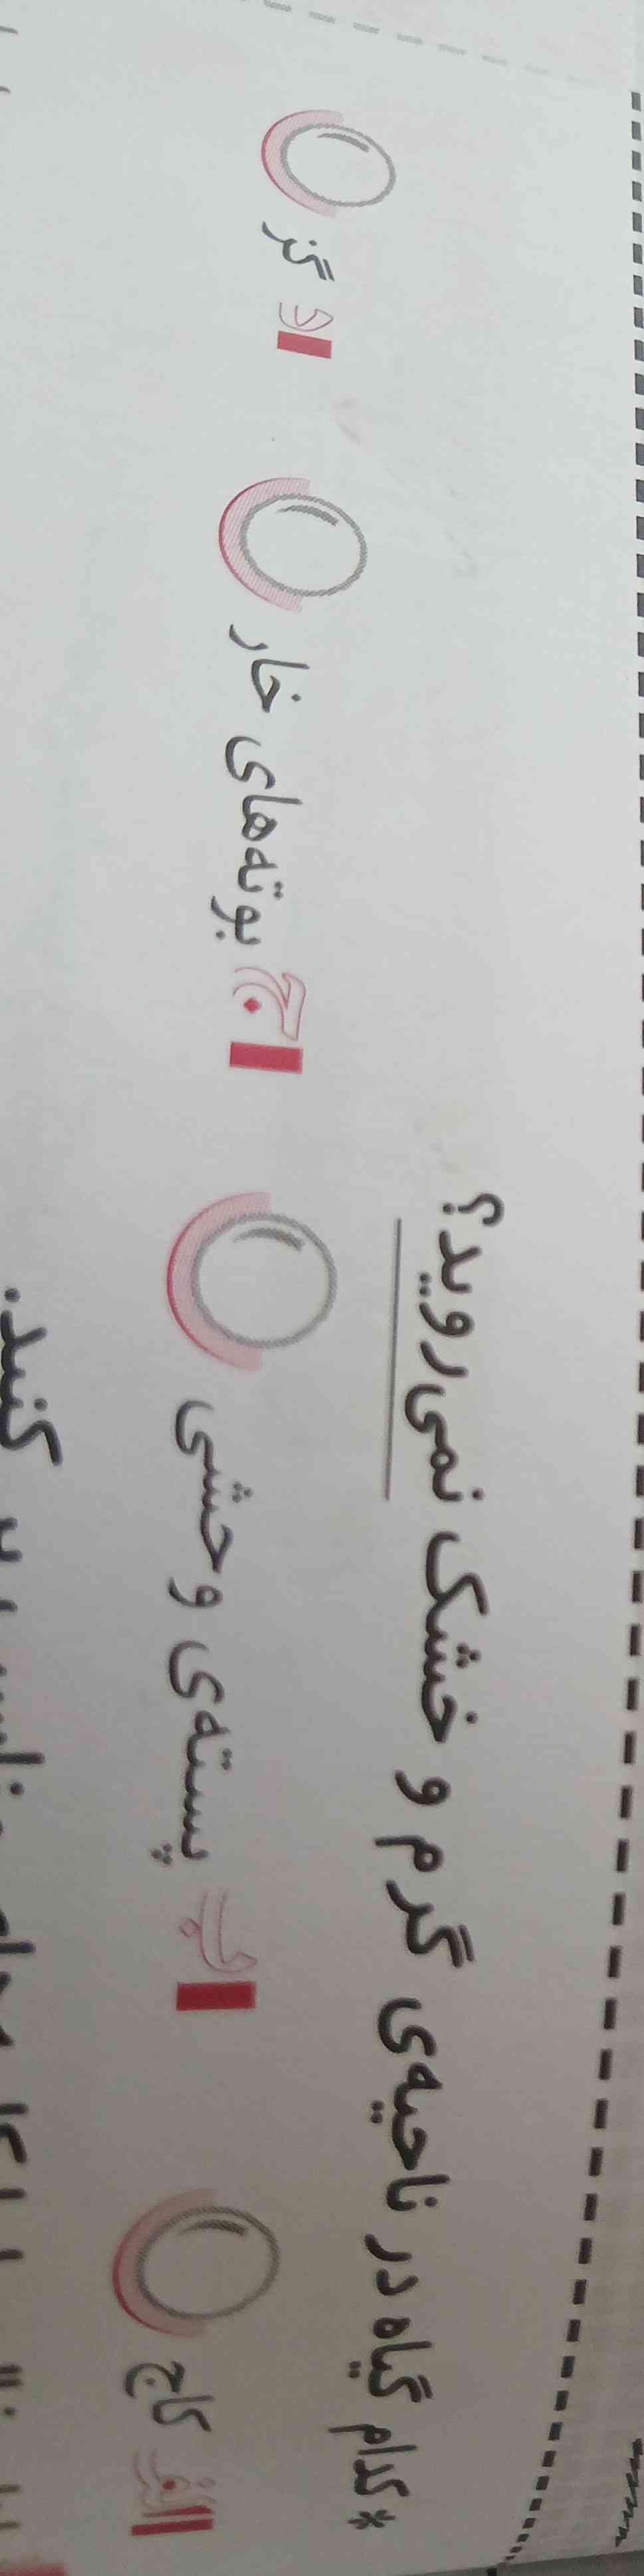 * کدام گیاه در ناحیه‌ی گرم و خشک نمی‌روید؟
الف کاج ب پسته‌ی وحشی ج بوته‌های خار د گز
کنند.